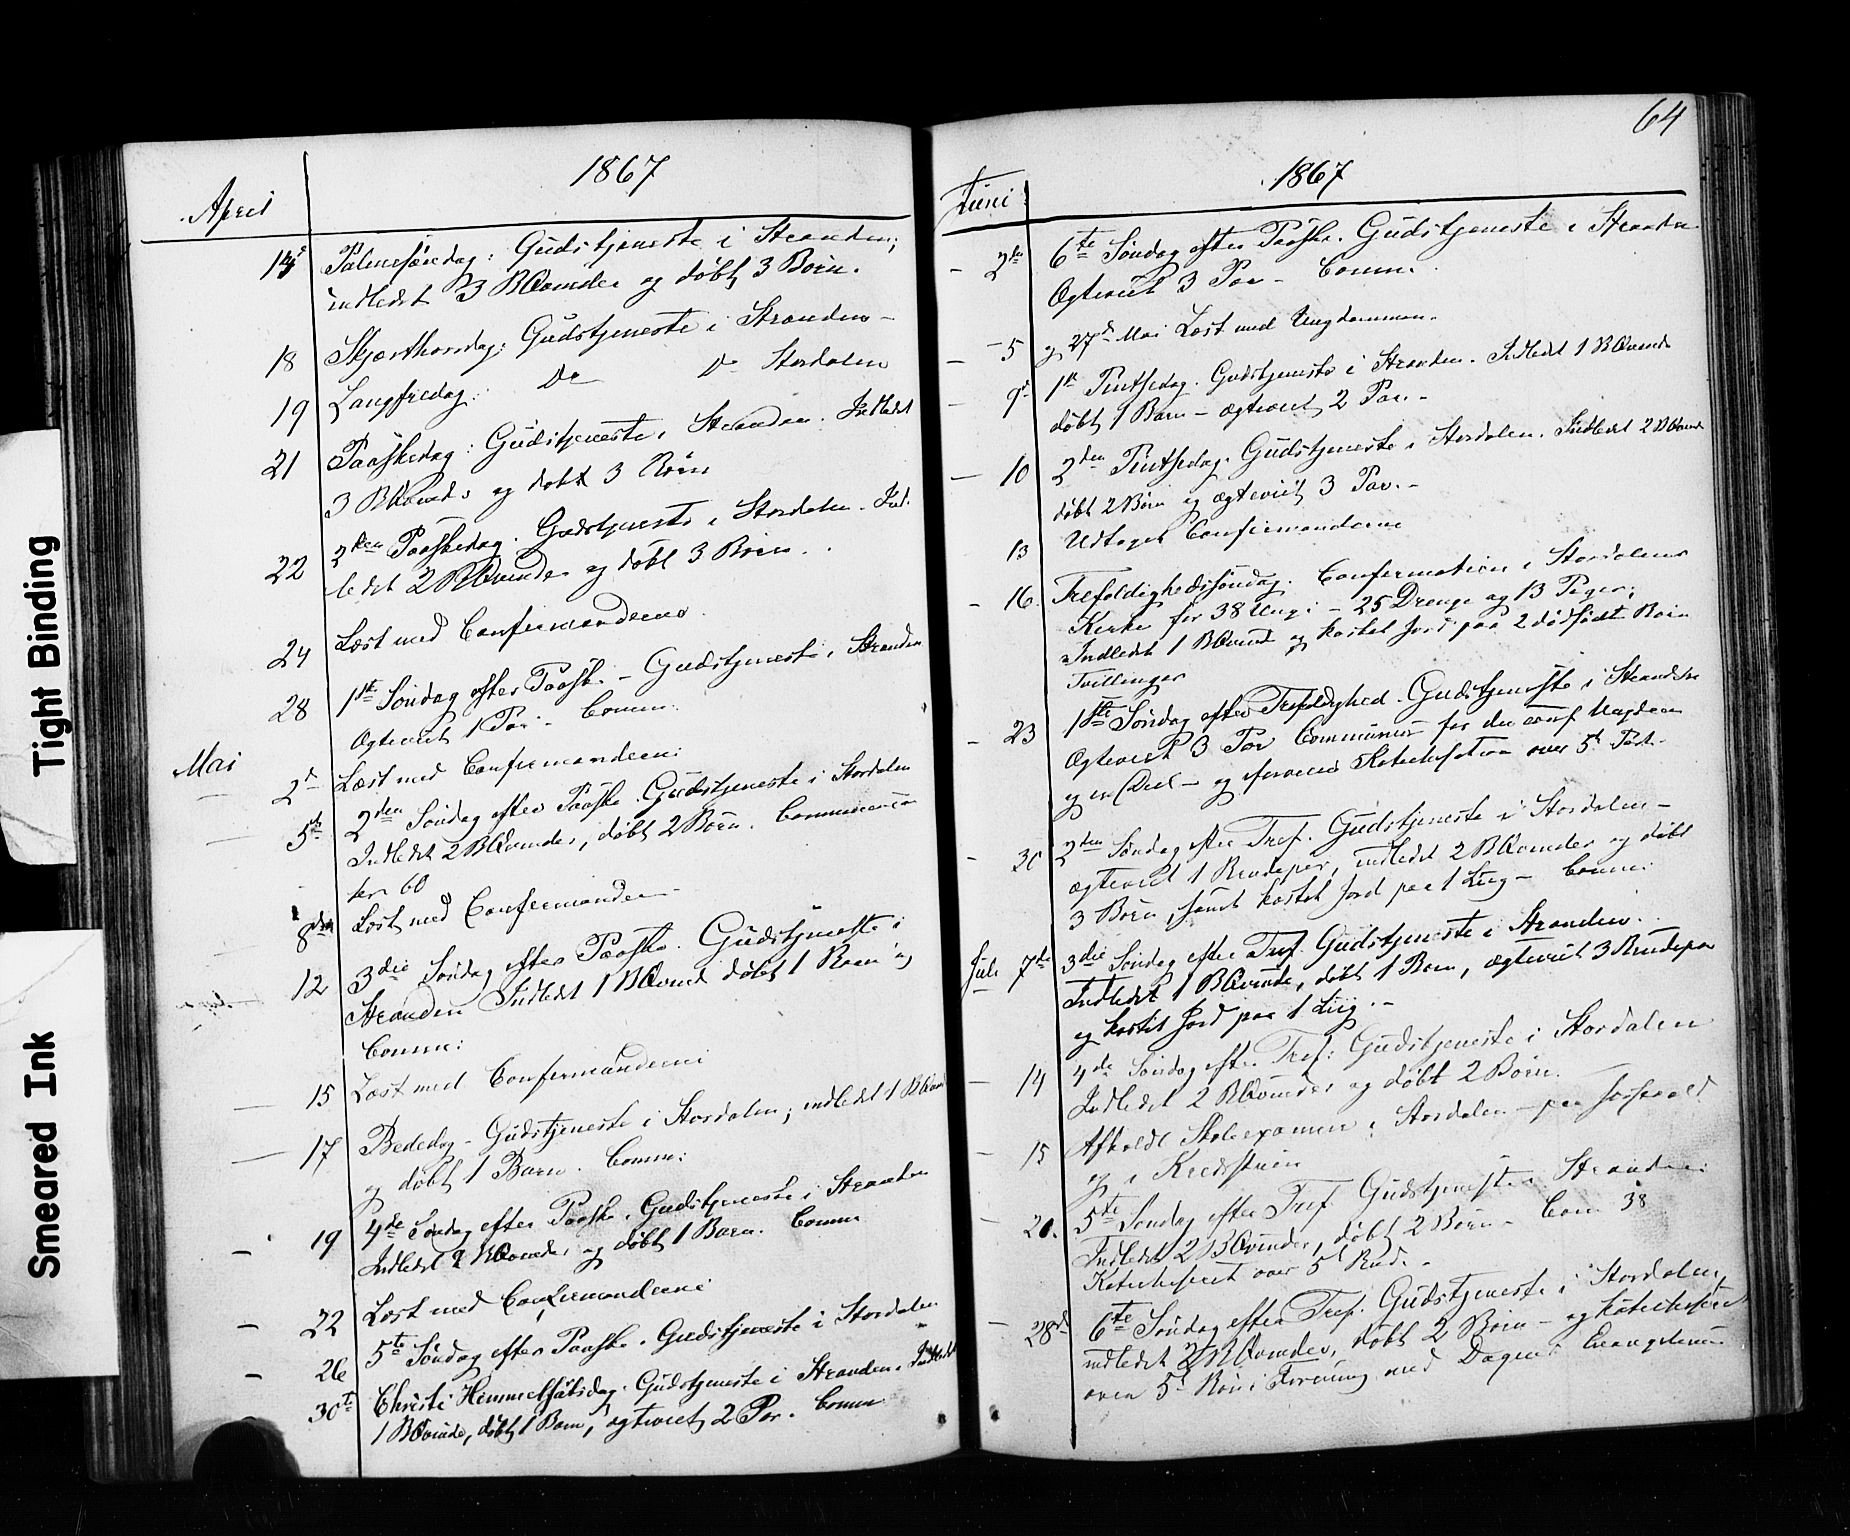 Tight Binding
Smeared Ink
1867
April
14de Palmesøndag: Gudstjeneste i Stranden;
indledet 3 BQvinder og døbt 3 Børn.
18 Skjærthorsdag: Gudstjeneste i Stranden -
19 Langfredag: Do Do Stordalen
21 Paaskedag: Gudstjeneste i Stranden. Indledet
3 BQvinder og døbt 3 Børn
22 2den Paaskedag. Gudstjeneste i Stordalen. Ind-
ledet 2 BQvinder og døbt 3 Børn.
24 Læst med Confirmanderne.
28 1ste Søndag efter Paaske - Gudstjeneste i Stranden
Ægteviet 1 Par - Comm:
Mai
2d Læst med Confirmanderne:
5te 2den Søndag efter Paaske. Gudstjeneste i Stordalen
Indledet 2 BQvinder, døbt 2 Børn. Communican
ter 60
8de Læst med Confirmanderne
12 3die Søndag efter Paaske. Gudstjeneste i
Stranden Indledet 1 BQvinde døbt 1 Barn og
Comm:
15 Læst med Confirmanderne
17 Bededag - Gudstjeneste i Stordalen; indledet 1 BQvind
og døbt 1 Barn. Comm:
19 4de Søndag efter Paaske. Gudstjeneste i Stranden
Indledet 2 BQvinder og døbt 1 Barn. Comm
22 Læst med Confirmanderne
26 5te Søndag efter Paaske. Gudstjeneste i Stordalen
30te Christi Himmelfartsdag. Gudstjeneste i Stranden. Indledet
1 BQvinde, døbt 1 Barn, ægteviet 2 Par. Comm
64
1867
Juni
- 2den 6te Søndag efter Paaske. Gudstjeneste i Stranden
Ægteviet 3 Par - Comm:
- 5 og 27d Mai Læst med Ungdommen.
- 9de 1ste Pintsedag. Gudstjeneste i Stranden. Indledet 1 BQvinde
døbt 1 Barn - ægteviet 2 Par. -
- 10 2den Pintsedag. Gudstjeneste i Stordalen. Indledet 2 BQvinde
døbt 2 Børn og ægteviet 3 Par. -
13 Udtaget Confirmanderne
- 16. Trefoldighedssøndag. Confirmation i Stordalens
Kirke for 38 Unge - 25 Drenge og 13 Piger;
Indledet 1 BQvinde og kastet Jord paa 2 dødfødte Børn
Tvillinger
- 23 1ste Søndag efter Trefoldighed. Gudstjeneste i Stranden
Ægteviet 3 Par Communion for den conf Ungdom
og en Deel - og Katechisation over 5t Part.
- 30 2den Søndag efter Tref. Gudstjeneste i Stordalen -
ægteviet 1 Brudepar, indledet 2 BQvinder og døbt
3 Børn, samt kastet Jord paa 1 Liig - Comm:
Juli 7de 3die Søndag efter Tref. Gudstjeneste i Stranden.
Indledet 1 BQvinde, døbt 1 Barn, ægteviet 3 Brudepar
og kastet Jord paa 1 Liig. -
- 14 4de Søndag efter Tref: Gudstjeneste i Stordalen
Indledet 2 BQvinder og døbt 2 Børn.
- 15 Afholdt Skoleexamen i Stordalen - paa
og i
- 21. 5te Søndag efter Tref Gudstjeneste i Stranden:
Indledet 2 BQvinder, døbt 2 Børn - Com 38
Katechiseret over 5t Bud. -
- 28de 6te Søndag efter Tref. Gudstjeneste i Stordalen,
indledet 2 BQvinder, døbt 2 Børn - og katechiseret
over 5t Bøn i Forening med Dagens Evangelium